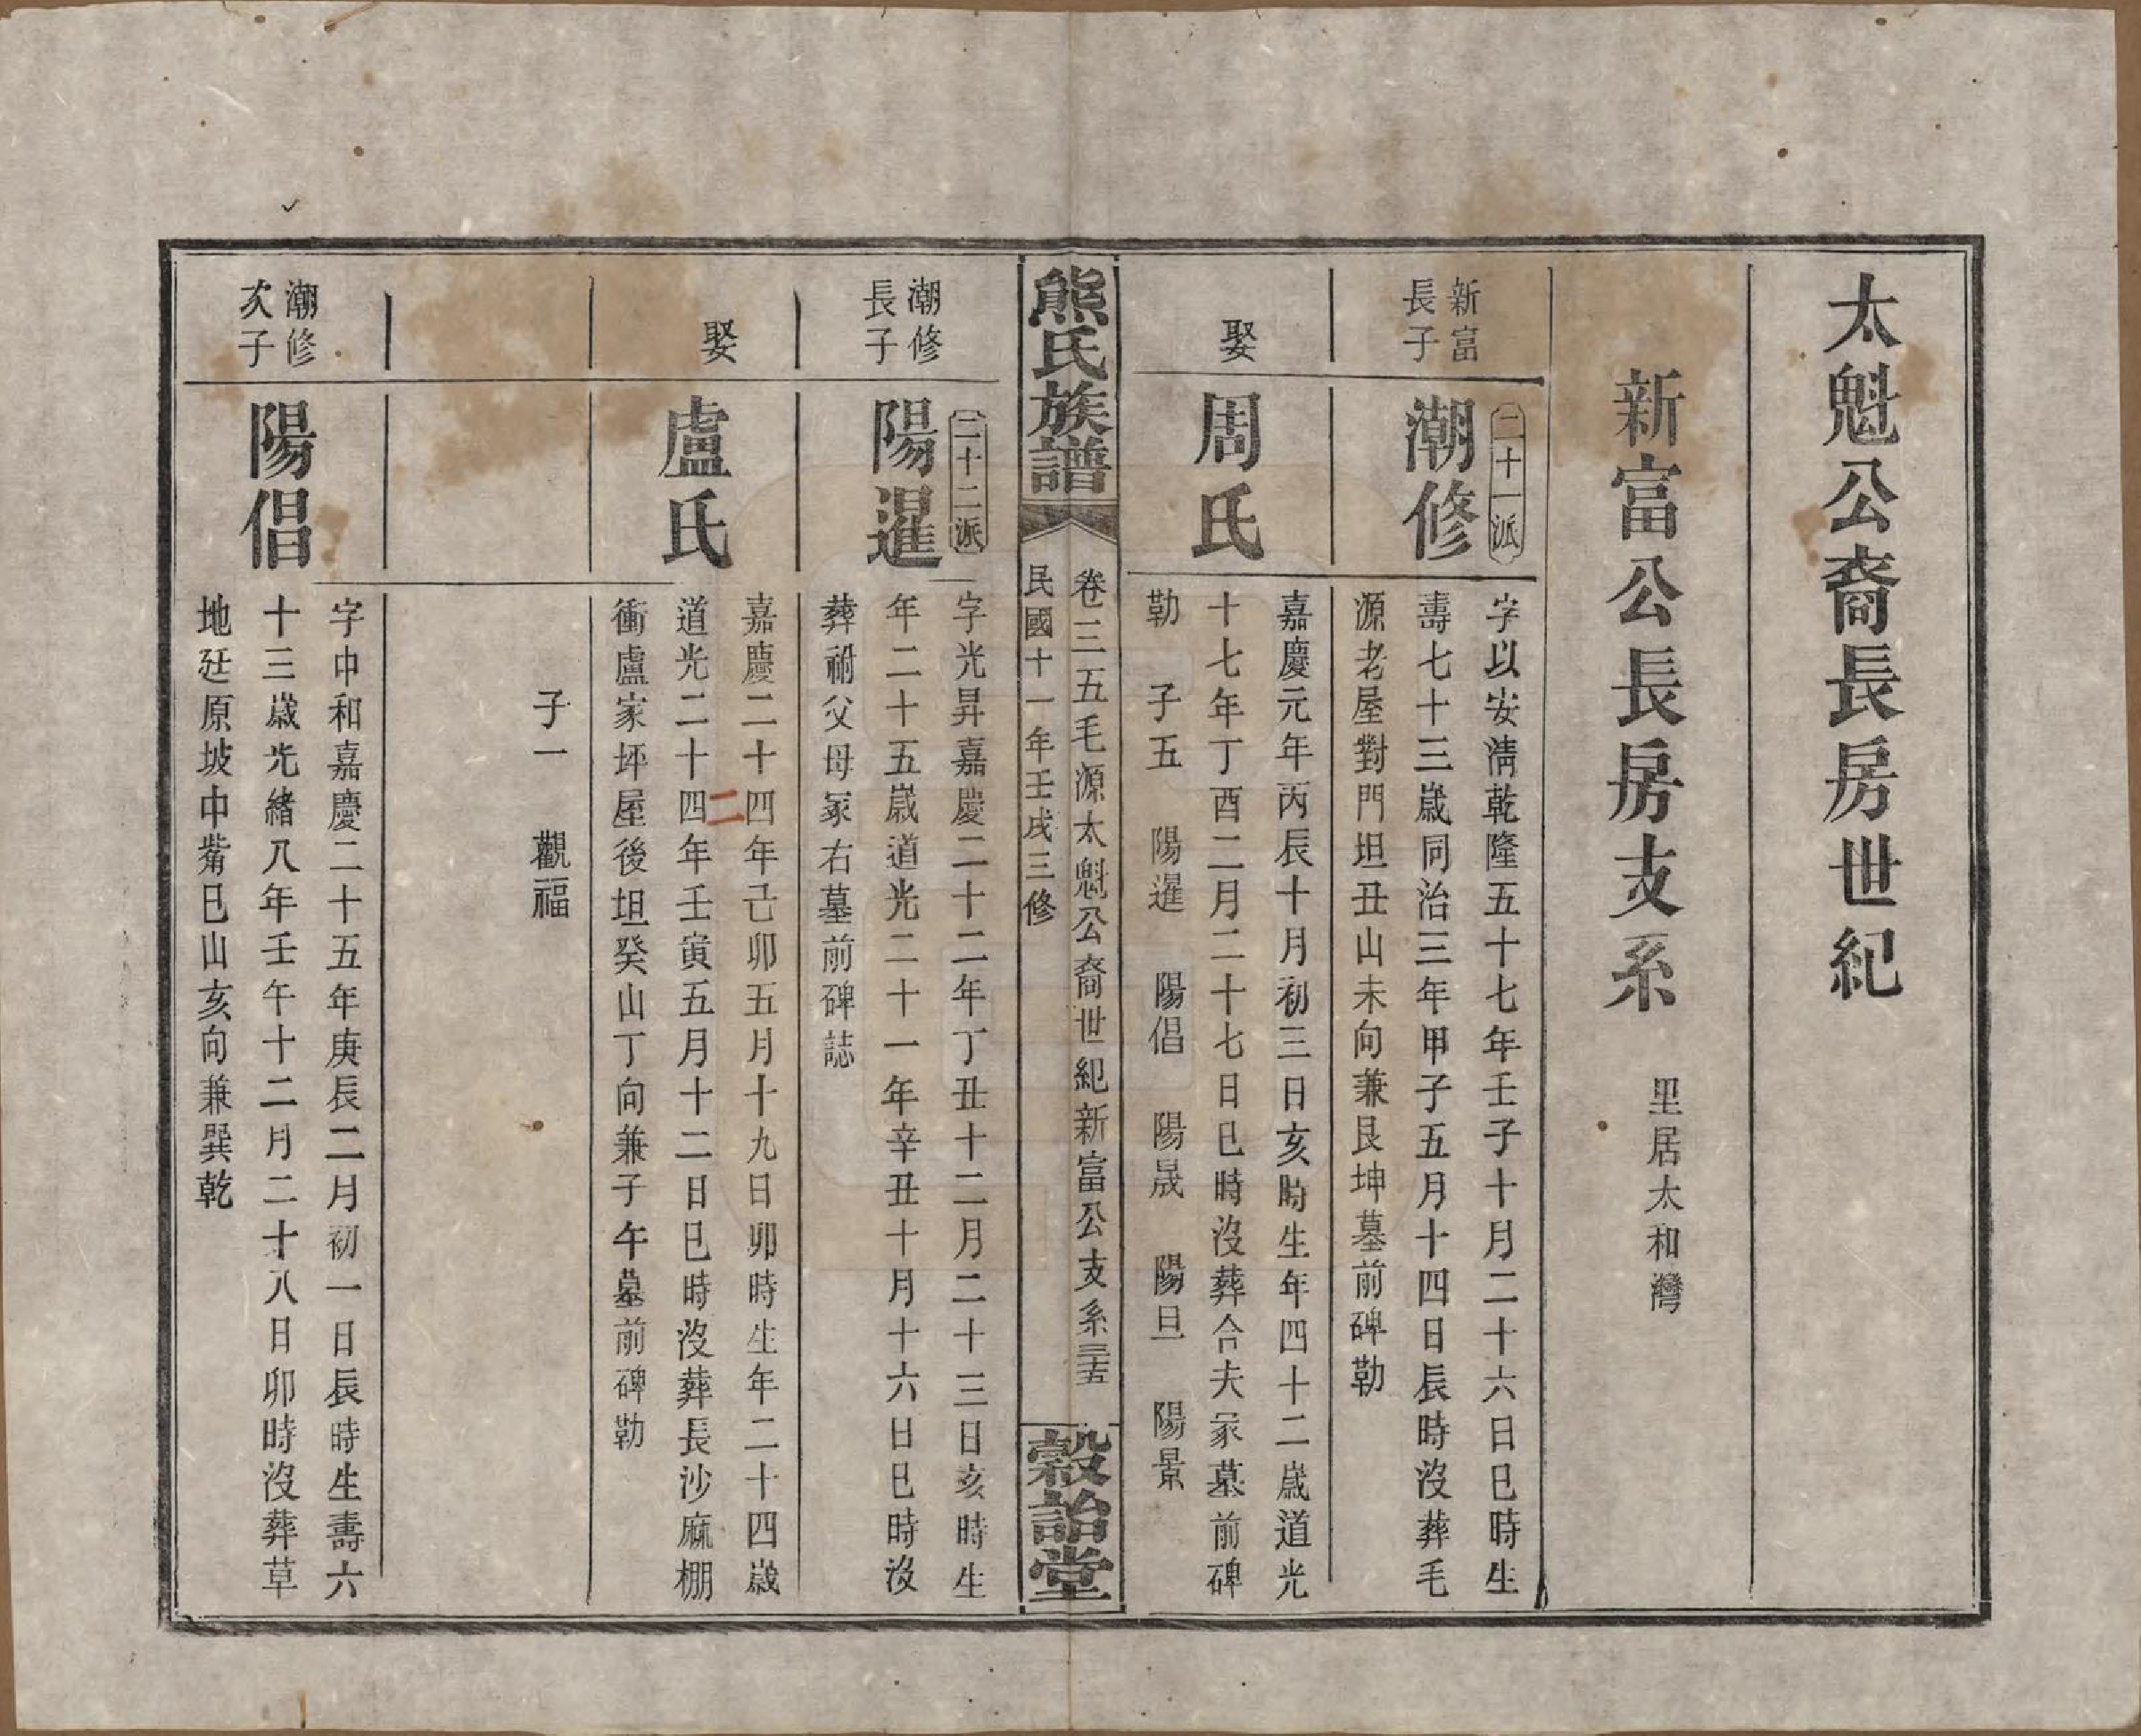 太魁公裔長房世紀
新富公長房支系
里居太和灣
新富
長子
二十一派
潮修
字以安清乾隆五十七年壬子十月二十六日巳時生
壽七十三歲同治三年甲子五月十四日辰時沒葬毛
源老屋對門坦丑山未向兼艮坤墓前碑勒
娶
周氏
嘉慶元年丙辰十月初三日亥時生年四十二歲道光
十七年丁酉二月二十七日巳時沒葬合夫冢墓前碑
勒 子五 陽暹 陽倡 陽晟 陽旦 陽景
熊氏族譜
卷二五毛源太魁公裔世紀新富公支系三十五
民國十一年壬戌三修
穀詒堂
潮修
長子
二十二派
陽暹
字光昇嘉慶二十二年丁丑十二月二十三日亥時生
年二十五歲道光二十一年辛丑十月十六日巳時沒
葬祔父母冢右墓前碑誌
娶
盧氏
嘉慶二十四年己卯五月十九日卯時生年二十四歲
道光二十四年壬寅五月十二日巳時沒葬長沙麻棚
二
衝盧家坪屋後坦癸山丁向兼子午墓前碑勒
子一 觀福
潮修
次子
陽倡
字中和嘉慶二十五年庚長二月初一日辰時生壽六
十三歲光緒八年壬午十二月二十八日卯時沒葬草
地瓦原坡中觜巳山亥向兼巽乾